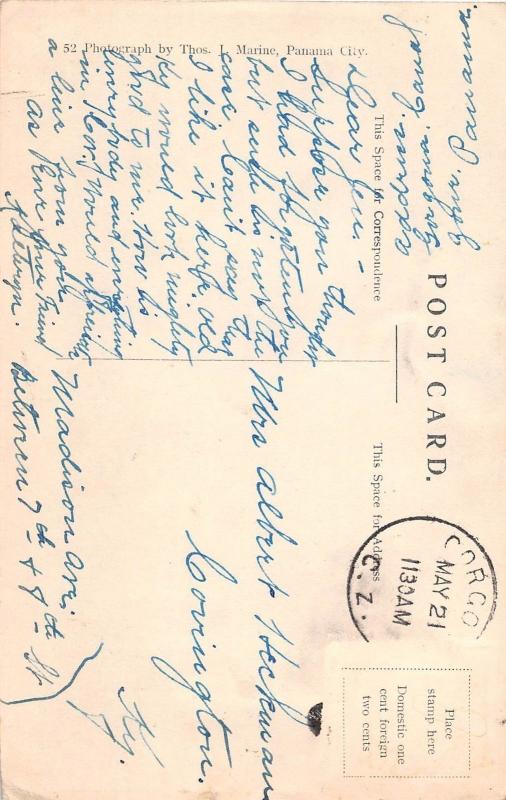 52 Photograph by Thos. I. Marine, Panama City.
POST CARD.
This Space for Correspondence
This Space for Address
Place
stamp here
Domestic one
cent foreign
two cents
COROZ
MAY 21
1130AM
C. Z.
Panama.
Dear Jen. -
Suppose you thought
I had forgotten you
but such is not the
case. Can't say that
I like it here. old
Ky would look mighty
good to me. How is
and everything
in Kov. Would
a line from you
as Ever your Friend
Mrs Albert Heckman
Covington.
Ky.
Madison Ave.
Between 7th & 8th St